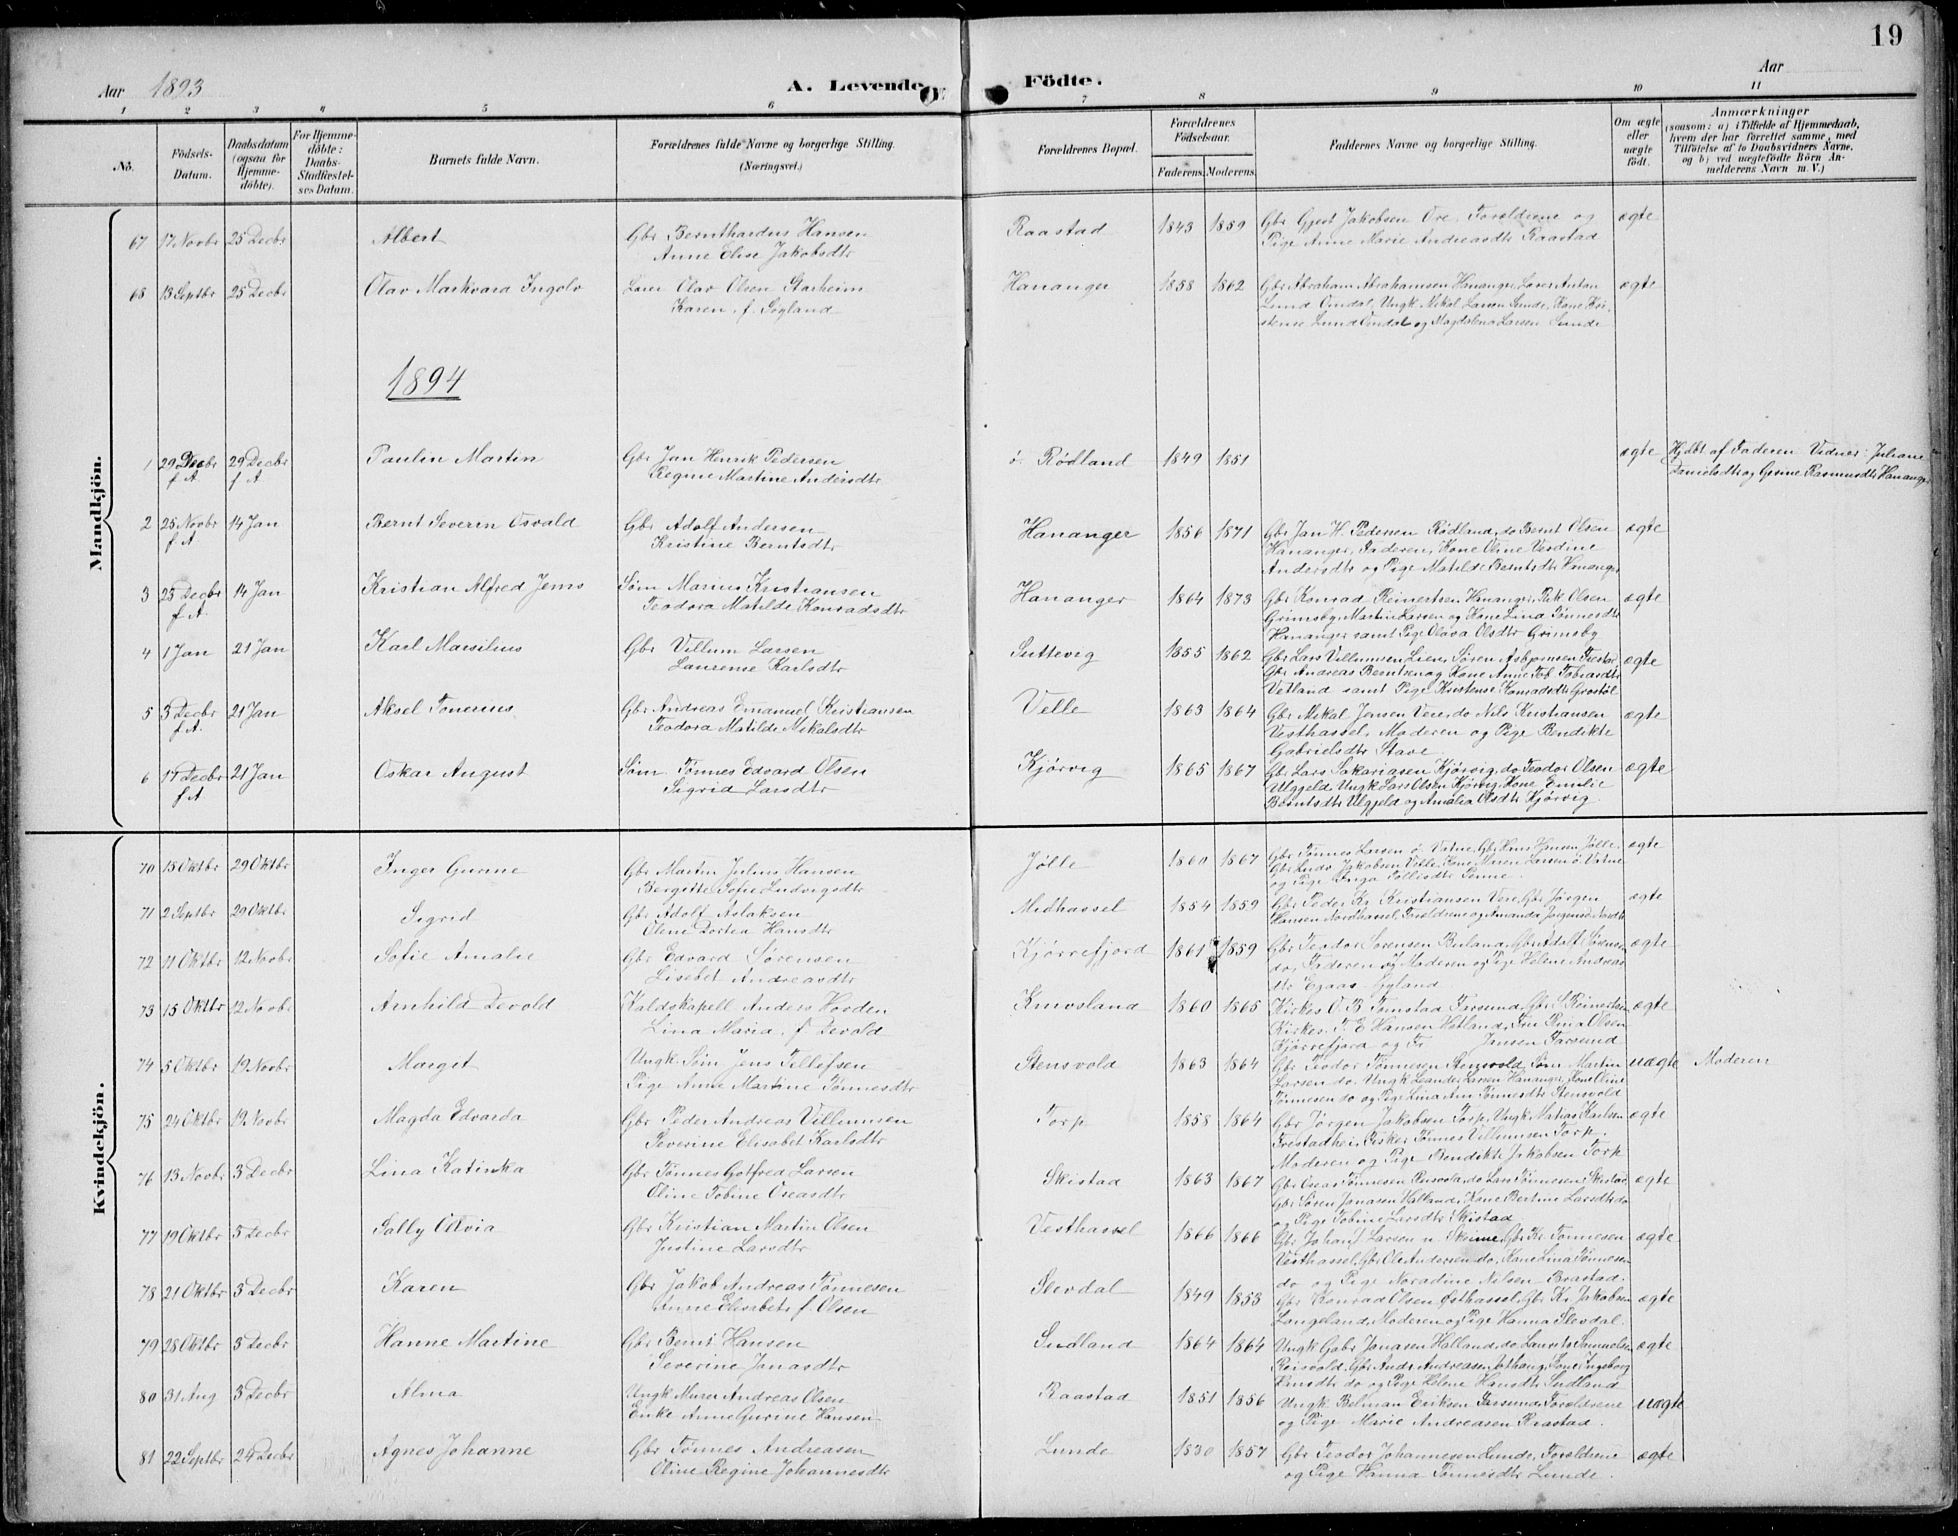 19
Aar 1893 A. Levende Födte. Aar
1 2 3 4 5 6 7 8 9 10 11
No. Födsels-Datum. Daabsdatum (ogsaa for Hjemme-döbte). For Hjemme-döbte: Daabs-Stadfæstel-ses Datum. Barnets fulde Navn. Forældrenes fulde Navne og borgerlige Stilling. (Næringsvei.) Forældrenes Bopæl. Forældrenes Födselsaar. Faderens. Moderens. Faddernes Navne og borgerlige Stilling. Om ægte eller uægte födt. Anmærkninger (saasom: a) i Tilfælde af Hjemmedaab, hvem der har forrettet samme, med Tilföielse af to Daabsvidners Navne, og b) ved uægtefödte Börn An-melderens Navn m. V.)
Mandkjön.
67 17 Novbr 25 Decbr Albert Gbr Bernthardus Hansen Raastad 1843 1859 Gbr Gjert Jakobsen Ore, Forældrene og ægte
Anne Elise Jakobsdtr Pige Anne Marie Andreasdtr Raastad
68 13 Septbr 25 Decbr Olav Markvard Ingolv Lærer Olav Olsen Starheim Hananger 1858 1862 Gbr Abraham Abrahamsen Hananger, Lærer Anton ægte
Karen f. Sogland Lund Omdal, Ungk. Mikal Larsen Lunde, Kone Kri-
stense Lund Omdal og Magdalena Larsen Lunde
1894
1 29 Decbr f. A. 29 Decbr f. A Paulin Martin Gbr Jan Henrik Pedersen ö. Rödland 1849 1851 ægte Hjdbt af Faderen Vidner: Juliane
Regine Martine Andersdtr Danielsdtr og Gesine Rasmusdtr Hananger
2 25 Novbr f. A. 14 Jan Bernt Severin Osvald Gbr Adolf Andersen Hananger 1856 1871 Gbr Jan H. Pedersen Rödland, do Bernt Olsen ægte
Kristine Berntsdtr Hananger, Faderen, Kone Oline Verdine
Andersdtr og Pige Matilde Berntsdtr Hananger
3 25 Decbr f. A. 14 Jan Kristian Alfred Jens Söm Marius Kristiansen Hananger 1864 1873 Gbr Konrad Reinertsen Hananger, Rik Olsen ægte
Teodora Matilde Konradsdtr Grimsby, Martin Larsen og Kone Lina Tönnesdtr
Hananger samt Pige Olava Olsdtr Grimsby
4 1 Jan 21 Jan Karl Marsilius Gbr Villum Larsen Suttevig 1855 1862 Gbr Lars Villumsen Lien, Sören Asbjörnsen Frestad ægte
Laurense Karlsdtr Gbr Andreas Berntsen og Kone Anne Tob Tobiasdtr
Vetland samt Pige Kristense Konradsdtr Grostöl
5 3 Decbr f. A. 21 Jan Aksel Tonerius Gbr Andreas Emanuel Kristiansen Velle 1863 1864 Gbr Mikal Jensen Vere, do Nils Kristiansen ægte
Teodora Matilde Mikalsdtr Vesthassel, Moderen og Pige Bendikte
Gabrielsdtr Stave
6 17 Decbr f. A 21 Jan Oskar August Söm. Tönnes Edvard Olsen Kjörvig 1865 1867 Gbr Lars Sakariasen Kjörvig, do Teodor Olsen ægte
Sigrid Larsdtr Ulgjeld, Ungk Lars Olsen Kjörvig, Kone Emilie
Berntsdtr Ulgjeld og Amalia Olsdtr Kjörvig.
Kvindekjön.
70 18 Oktbr 29 Oktbr Inger Gurine Gbr Martin Julius Hansen Jölle 1860 1867 Gbr Tönnes Larsen ö. Vatne, Gbr Hans Hansen Jölle, ægte
Bergitte Sofie Ludvigsdtr Gbr Ludv Jakobsen Velle, Kone Maren Larsen ö. Vatne
og Pige Inga Tollisdtr Penne.
71 2 Septbr 29 Oktbr Sigrid Gbr Adolf Aslaksen Midhassel 1854 1859 Gbr Peder Kr Kristiansen Vere, Gbr Jörgen ægte
Oline Dortea Hansdtr Hansen Nordhassel, Forældrene og Amanda Jörgensd. Nordh
72 11 Oktbr 12 Novbr Sofie Amalie Gbr Edvard Sörensen Kjörrefjord 1861 1859 Gbr Teodor Sörensen Buland, Gbr Adolf Sörensen ægte
Lisebet Andreasdtr do, Faderen og Moderen og Pige Helene Andreas
dtr Egaas Gyland
73 15 Oktbr 12 Novbr Arnhild Devold Kaldskapell Anders Hovden Knivsland 1860 1865 Kirkes. O. B. Tomstad Farsund, Gbr S. Reinertsen ægte
Lina Maria f. Devold Kirkes. T. E. Hansen Vetland, Fru Rina Olsen
Kjörrefjord og Fr Jansen Farsund
74 5 Oktbr 19 Novbr Margit Ungk Söm Jens Tellefsen Stensvold 1863 1864 Gbr Teodor Tönnesen Stensvold, Söm Martin uægte Moderen
Pige Anne Martine Tönnesdtr Larsen do, Ungk Leander Larsen Hananger, Kone Oline
Tönnesen do og Pige Lina Ann Tönnesdtr Stensvold
75 24 Oktbr 19 Novbr Magda Edvarda Gbr Peder Andreas Villumsen Torp 1858 1864 Gbr Jörgen Jakobsen Torp, Ungk Matias Karlsen ægte
Severine Elisabet Karlsdtr Frestadhei, Fisker Tönnes Villumsen Torp.
Moderen og Pige Bendikte Jakobsen Tork
76 13 Novbr 3 Decbr Lina Katinka Gbr Tönnes Gotfred Larsen Skistad 1863 1867 Gbr Oseas Tönnesen Reisvold, do Lars Tönnesen Skistad ægte
Oline Tobine Oseasdtr Gbr Sören Jonasen Halland, Kone Bertine Larsdtr do
og Pige Tobine Larsdtr Skistad
77 19 Oktbr 3 Decbr Sally Olivia Gbr Kristian Martin Olsen Vesthassel 1866 1866 Gbr Johan J. Larsen n Skeime, Gbr Kr. Tönnesen ægte
Justine Larsdtr Vesthassel, Gbr Ole Andersen do, Kone Lina Tönnesen
do og Pige Noradine Nilsen Brastad.
78 21 Oktbr 3 Decbr Karen Gbr Jakob Andreas Tönnesen Slevdal 1849 1853 Gbr Konrad Olsen Östhassel, Gbr Kr. Jakobsen ægte
Anne Elisabet f. Olsen Langeland, Moderen og Pige Hanna Slevdal.
79 28 Oktbr 3 Decbr Hanne Martine Gbr Bernt Hansen Sudland 1864 1864 Ungk Gabr Jonasen Halland, do Laurits Samuelsen ægte
Severine Jonasdtr Reisvold, Gbr Andr Andreasen, Kone Ingeborg
do og Pige Helene Hansdtr Sudland
80 31 Aug 3 Decbr Alma Ungk Murer Andreas Olsen Raastad 1851 1856 Ungk. Belman Eriksen Farsund, Forældrene uægte
Enke Anne Gurine Hansen og Pige Marie Andreasen Raastad.
81 22 Septbr 24 Decbr Agnes Johanne Gbr Tönnes Andreasen Lunde 1830 1857 Gbr Teodor Johannesen Lunde, Forældrene ægte
Oline Regine Johannesdtr og Pige Hanna Tönnesdtr Lunde.